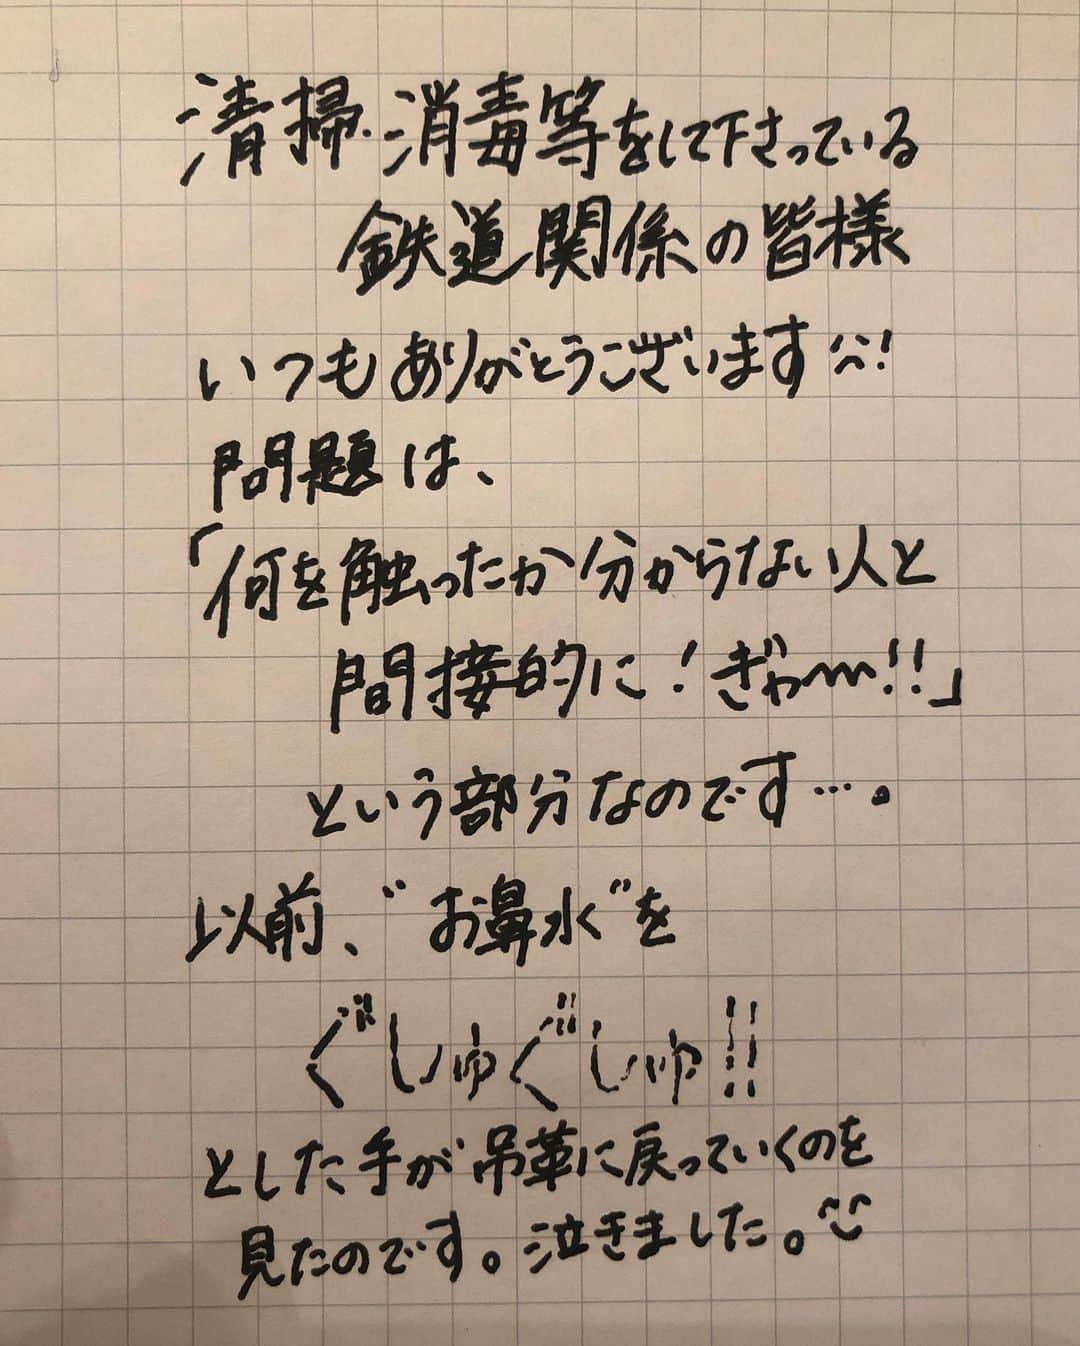 清掃・消毒等をして下さっている
鉄道関係の皆様
いつもありがとうございます^^!
問題は、
「何を触ったか分からない人と
間接的に!ぎゃ〜!!」
という部分なのです…。
以前、“お鼻水”を
ぐしゅぐしゅ!!
とした手が吊革に戻っていくのを
見たのです。泣きました。^^